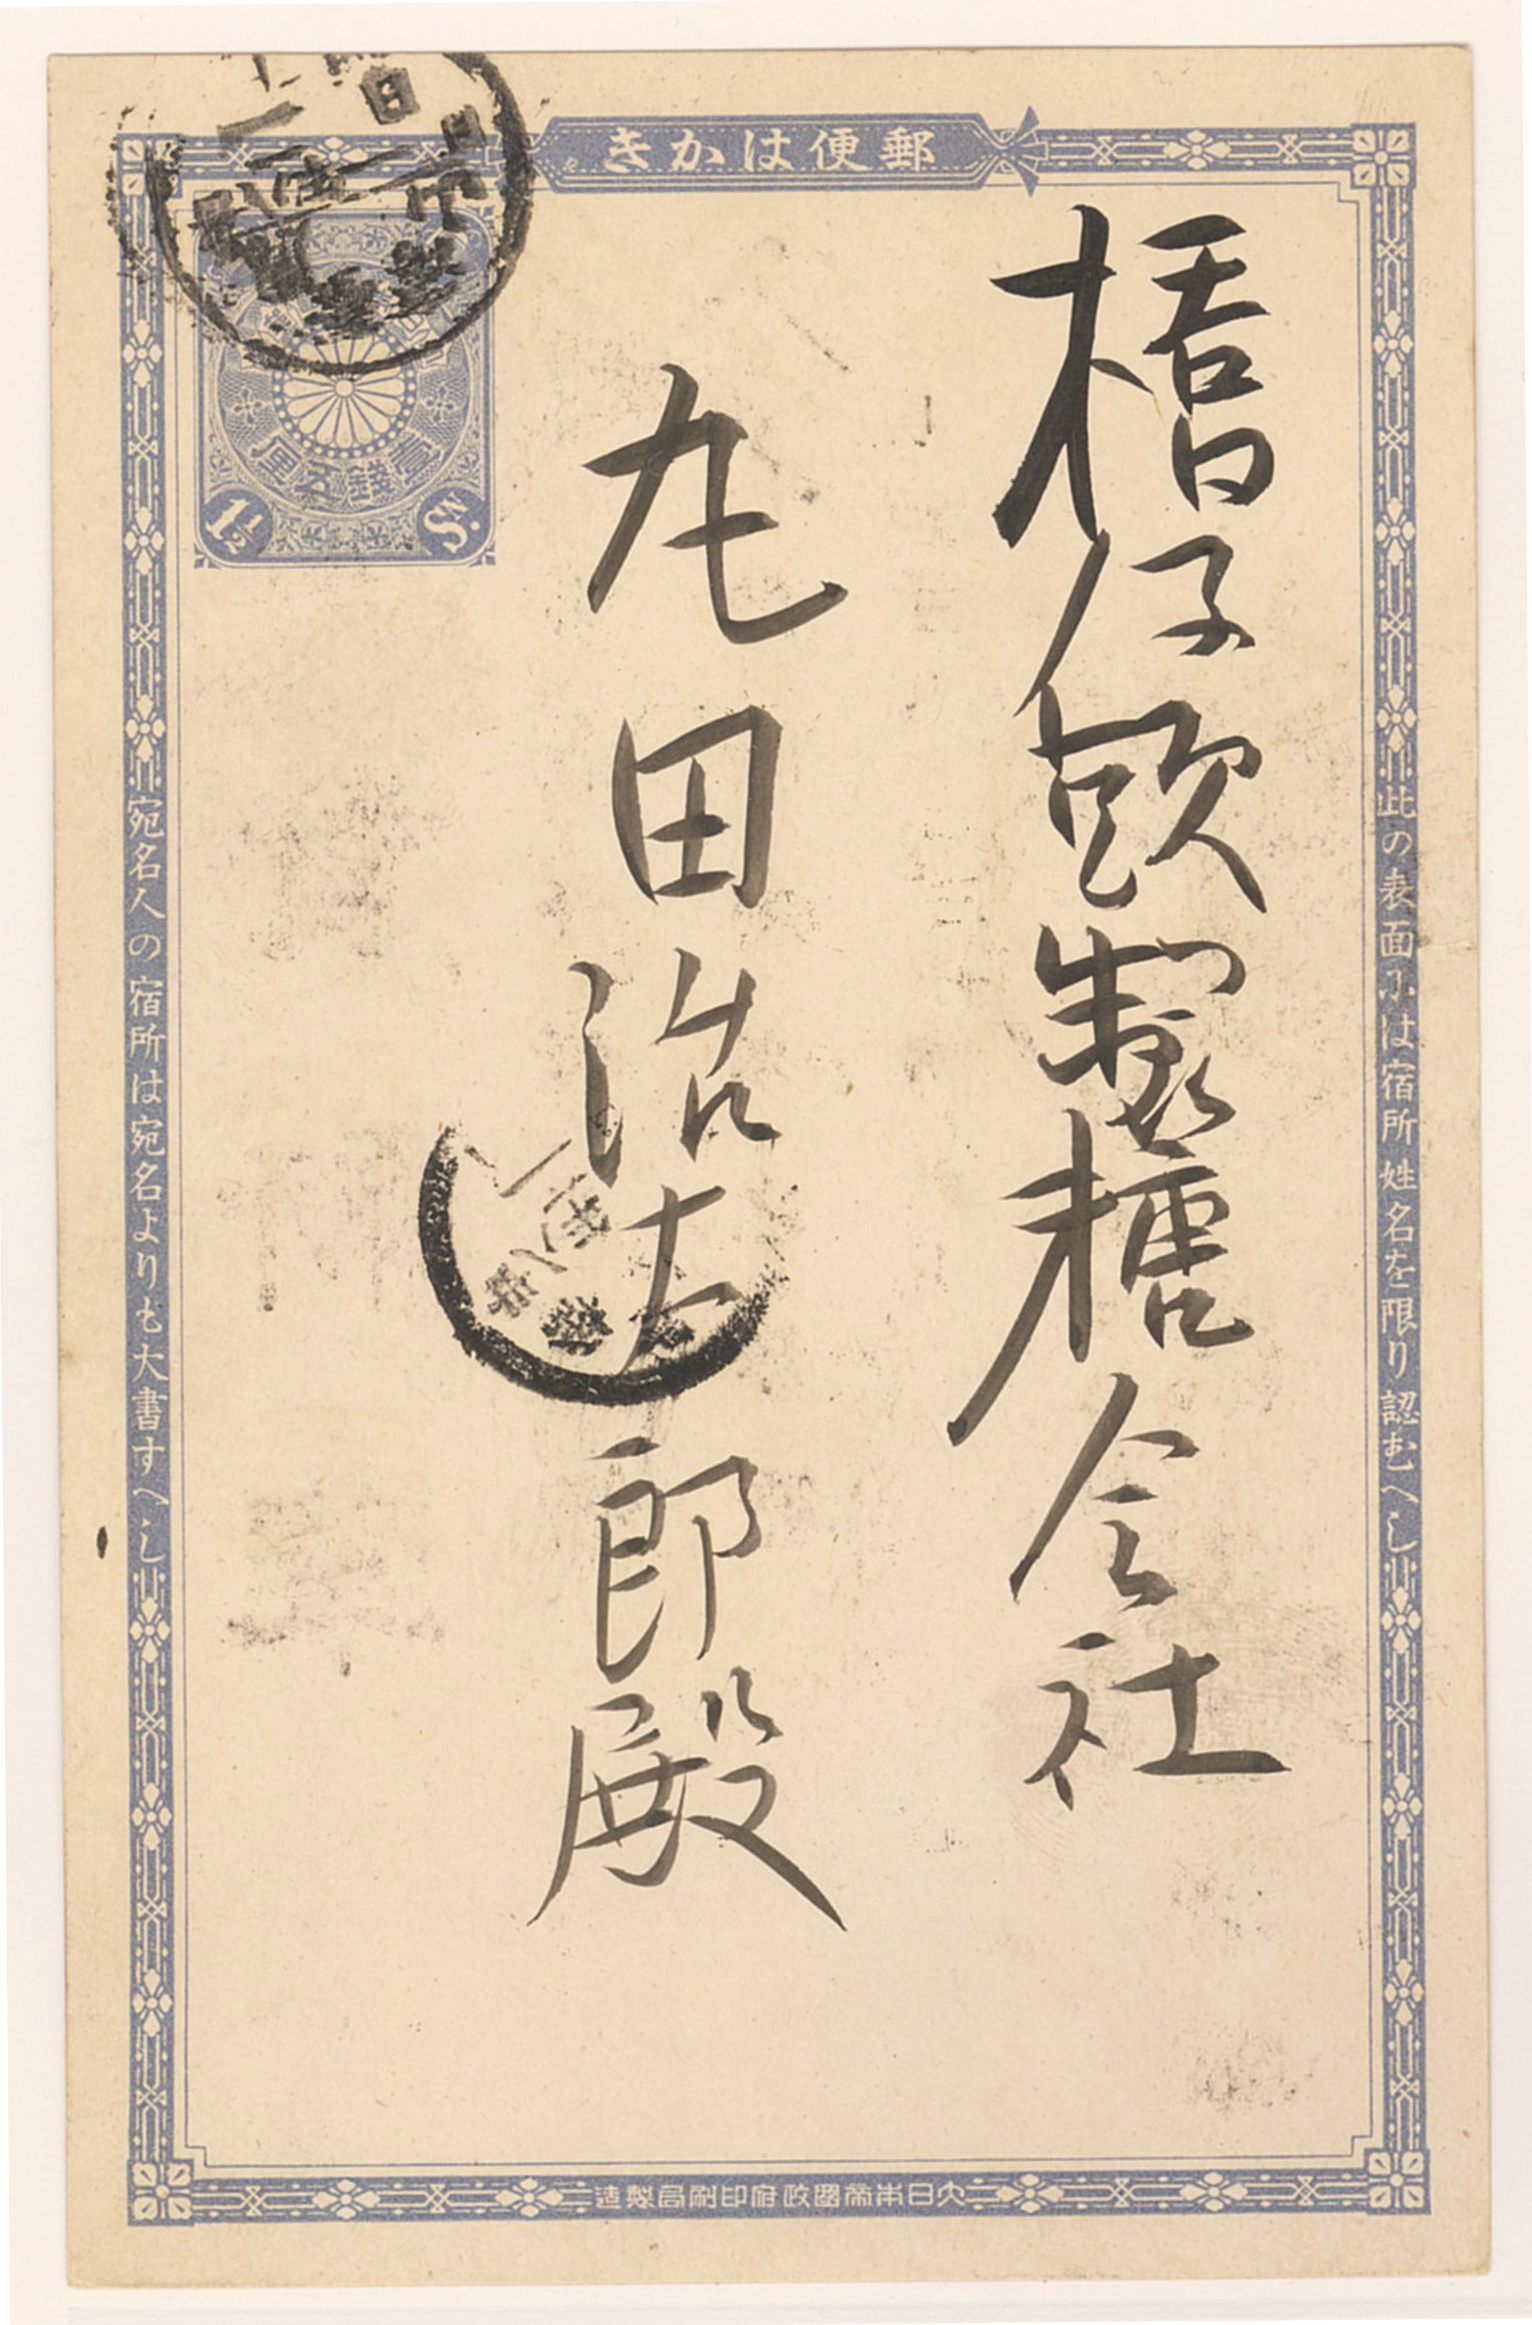 郵便はかき
此の表面には宿所姓名を限り認むへし
橋仔頭製糖会社
丸田治太郎殿
壹錢五厘
1½ SN.
宛名人の宿所は宛名よりも大書すへし
大日本帝國政府印刷局製造